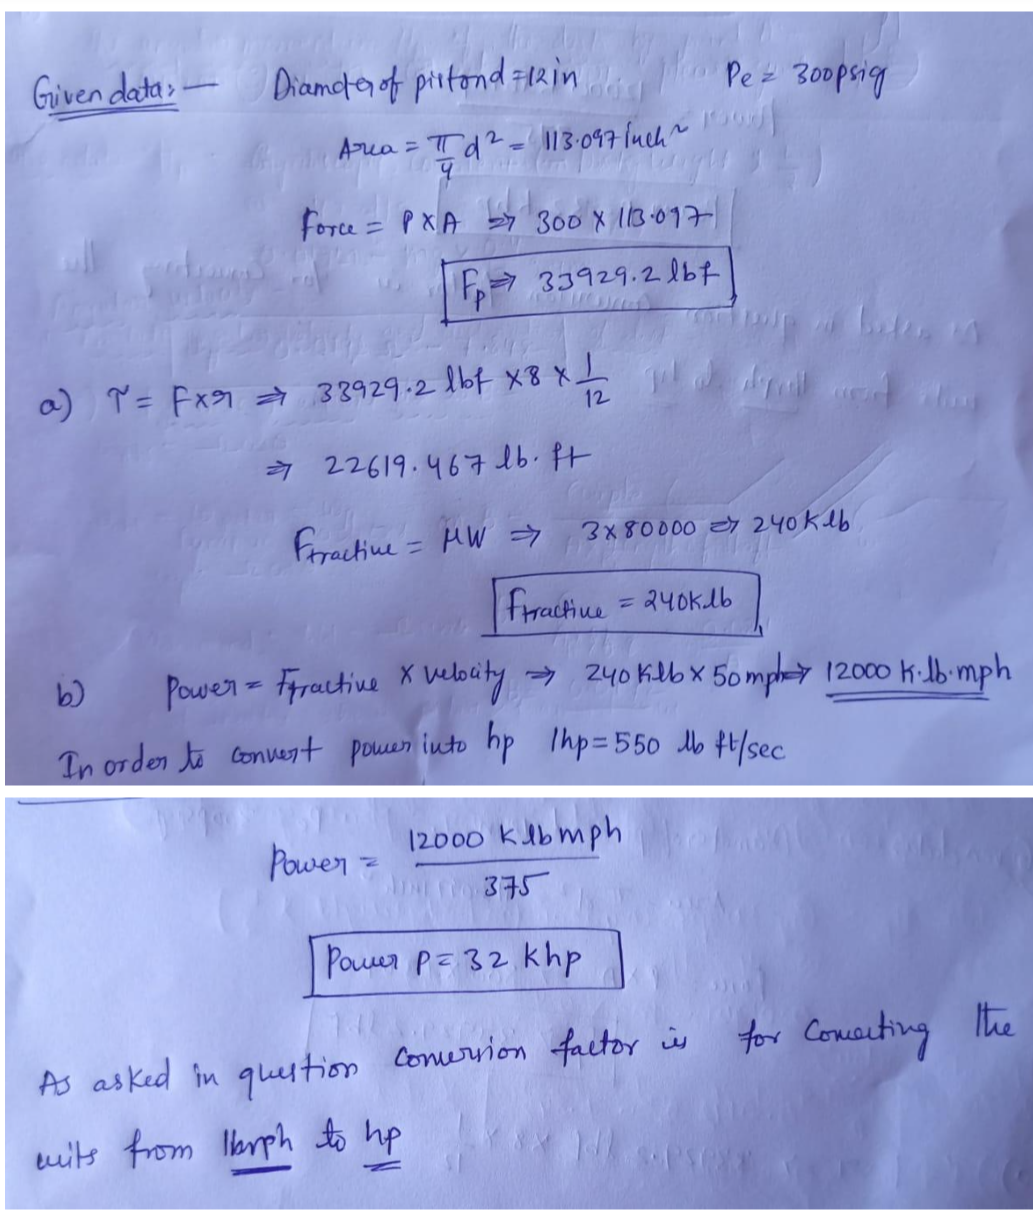 Given data:- Diameter of pistond = 12in Pe = 300psig
Area = π/4 d² = 113.097 inch²
Force = P X A ⇒ 300 X 113.097
Fp ⇒ 33929.2 lbf
a) τ = F×r ⇒ 33929.2 lbf X8 X 1/12
⇒ 22619.467 lb. ft
Ftractive = μW ⇒ 3×80000 ⇒ 240K lb
Ftractive = 240K.lb
b) Power = Ftractive X velocity ⇒ 240 K.lb X 50 mph ⇒ 12000 K.lb.mph
In order to convert power into hp 1hp=550 lb ft/sec
Power = 12000 K lb mph / 375
Power P = 32 Khp
As asked in question conversion factor is for converting the
units from lbmph to hp